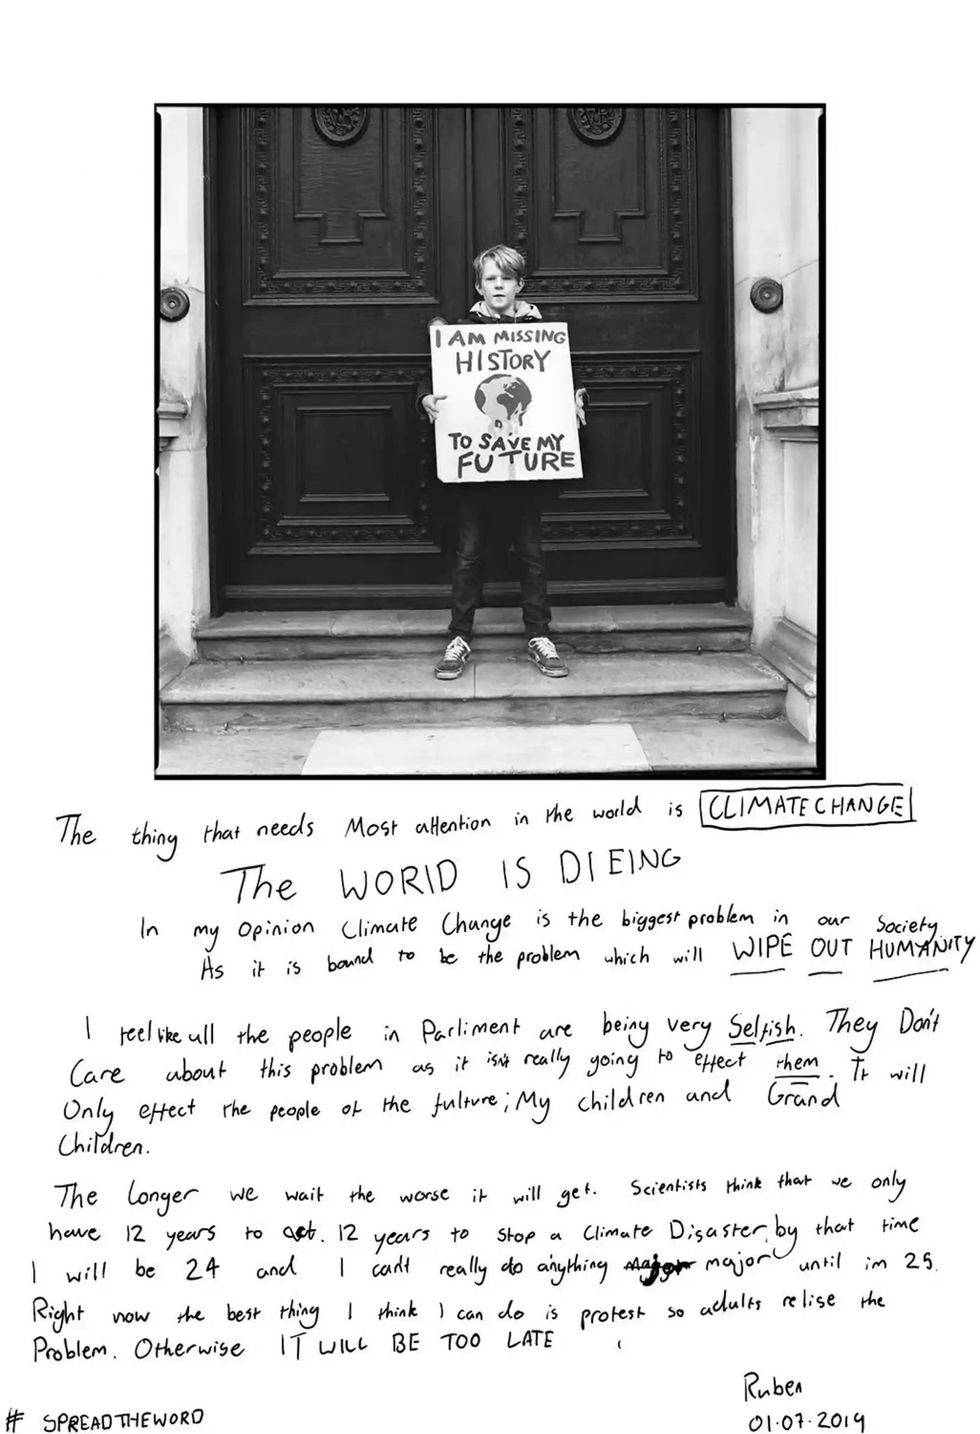 I AM MISSING
HISTORY
TO SAVE MY
FUTURE
The thing that needs Most attention in the world is CLIMATE CHANGE
The WORlD IS DIEING
In my opinion Climate Change is the biggest problem in our Society.
As it is bound to be the problem which will WIPE OUT HUMANITY
I feel like all the people in Parliment are being very Selfish. They Don't
Care about this problem as it isn't really going to effect them. It will
Only effect the people of the fulture; My children and Grand
Children.
The longer we wait the worse it will get. Scientists think that we only
have 12 years to act. 12 years to stop a Climate Disaster, by that time
I will be 24 and I can't really do anything major until im 25.
Right now the best thing I think I can do is protest so adults relise the
Problem. Otherwise IT WILL BE TOO LATE
Ruben
# SPREADTHEWORD
01.07.2019